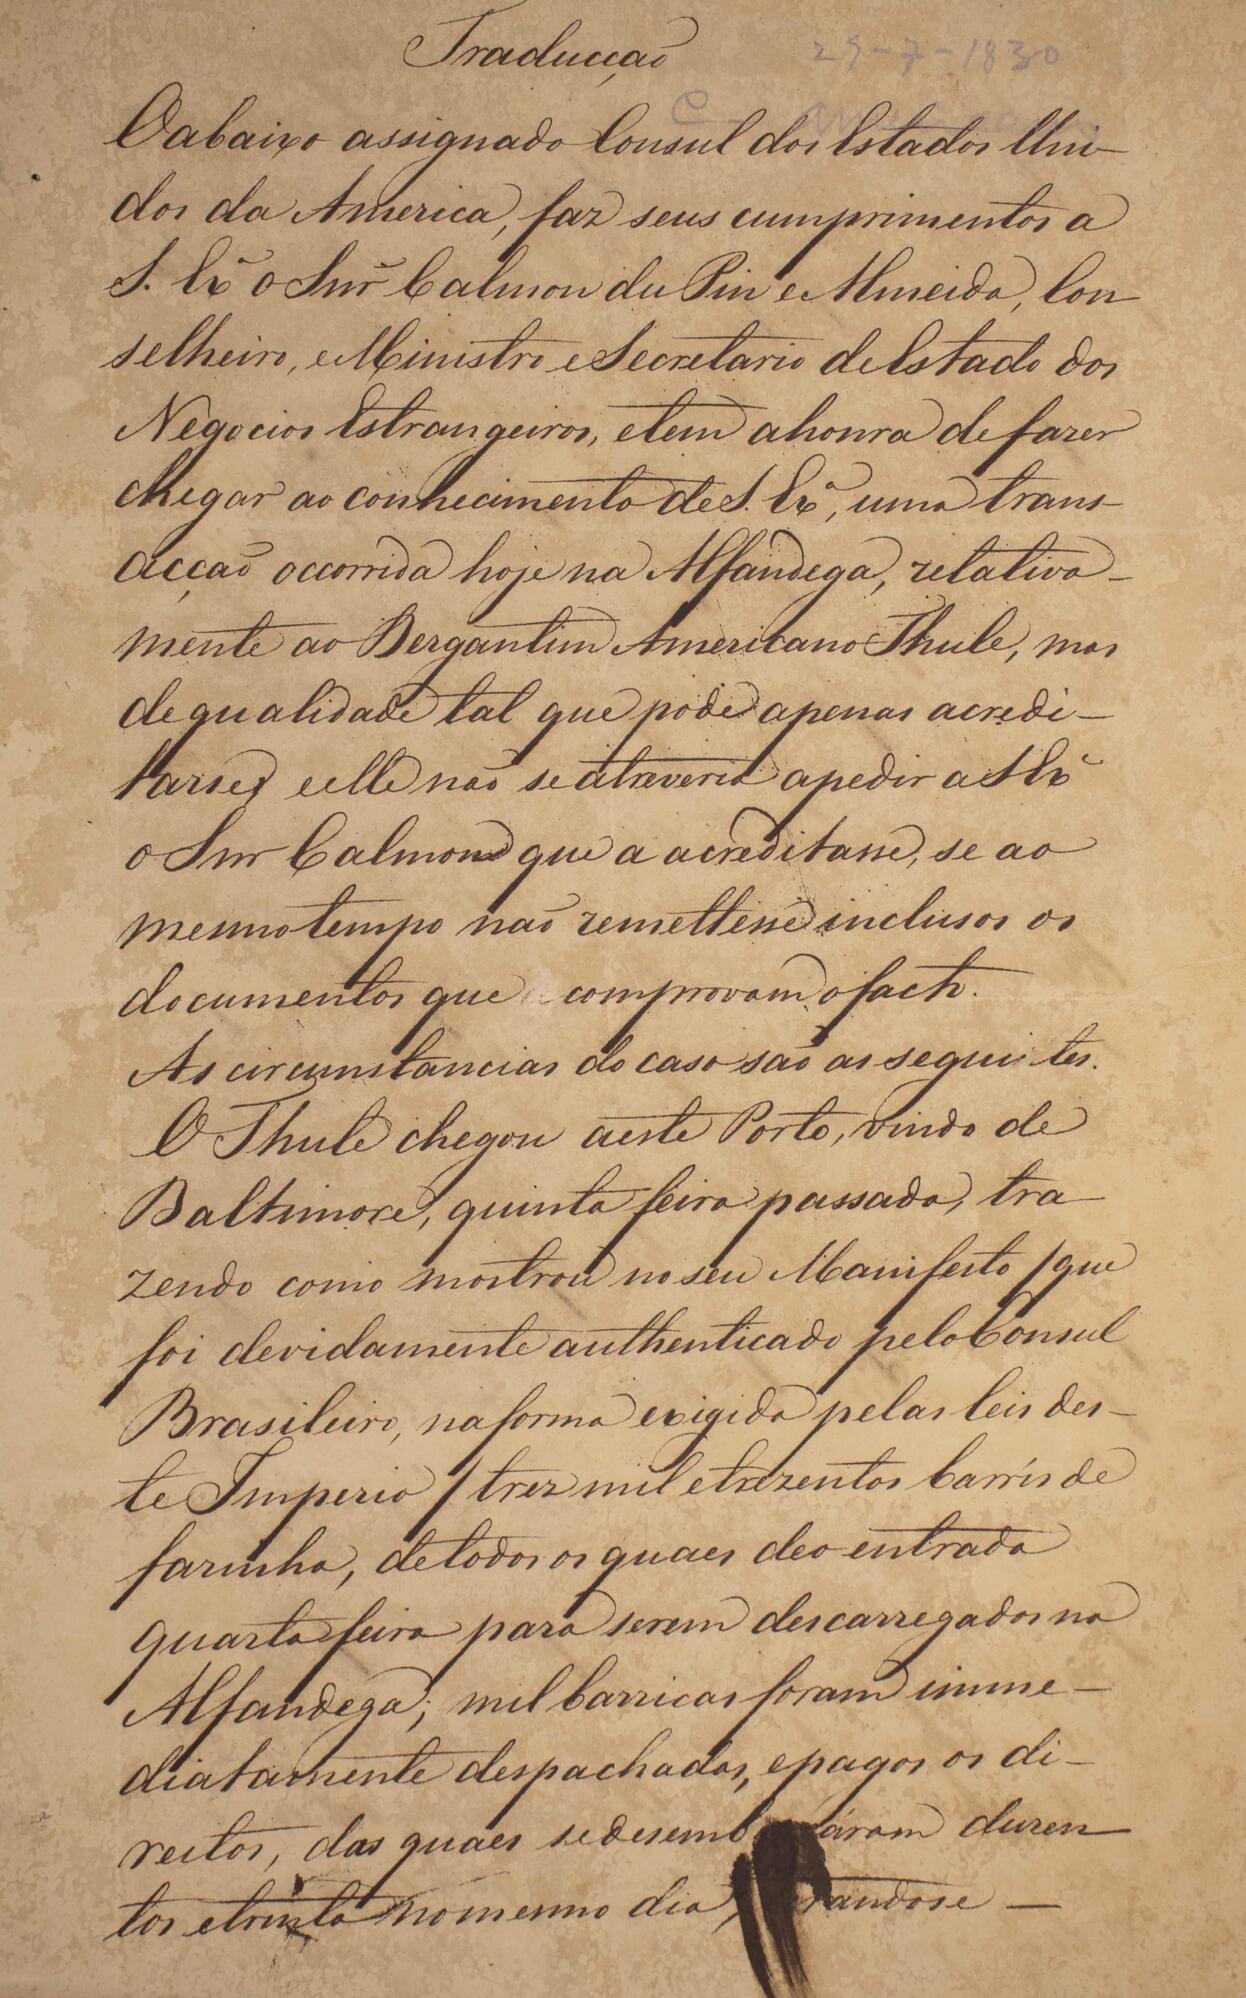 Traducção
29-7-1830
O abaixo assignado Consul dos Estados Uni-
dos da America, faz seus cumprimentos a
S. Exª o Snr Calmon du Pin e Almeida, Con
selheiro, e Ministro e Secretario de Estado dos
Negocios Estrangeiros, e tem a honra de fazer
chegar ao conhecimento de S. Exª, uma trans-
acção occorrida hoje na Alfandega, relativa-
mente ao Bergantim Americano Thule, mas
de qualidade tal que pode apenas acredi-
tarse, e elle não se atreveria a pedir a S Exª
o Snr Calmon que a acreditasse, se ao
mesmo tempo não remettesse inclusos os
documentos que comprovam o facto.
As circumstancias do caso são as seguites.
O Thule chegou aeste Porto, vindo de
Baltimore, quinta feira passada, tra-
zendo como mostrou no seu Manifesto / que
foi devidamente authenticado pelo Consul
Brasileiro, na forma exigida pelas leis des-
te Imperio / trez mil e trezentos barrís de
farinha, de todos os quaes deo entrada
quarta feira para serem descarregados na
Alfandega; mil barricas foram imme-
diatamente despachadas, e pagos os di-
reitos, das quaes se desemb áram duzen
tos e trinta no mesmo dia, randose —